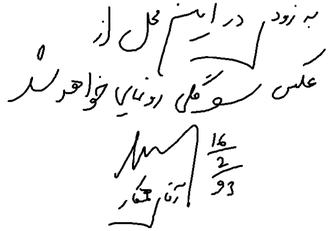 به زودی در این محل از
عکس سوگلی رونمایی خواهد شد
16
2
93